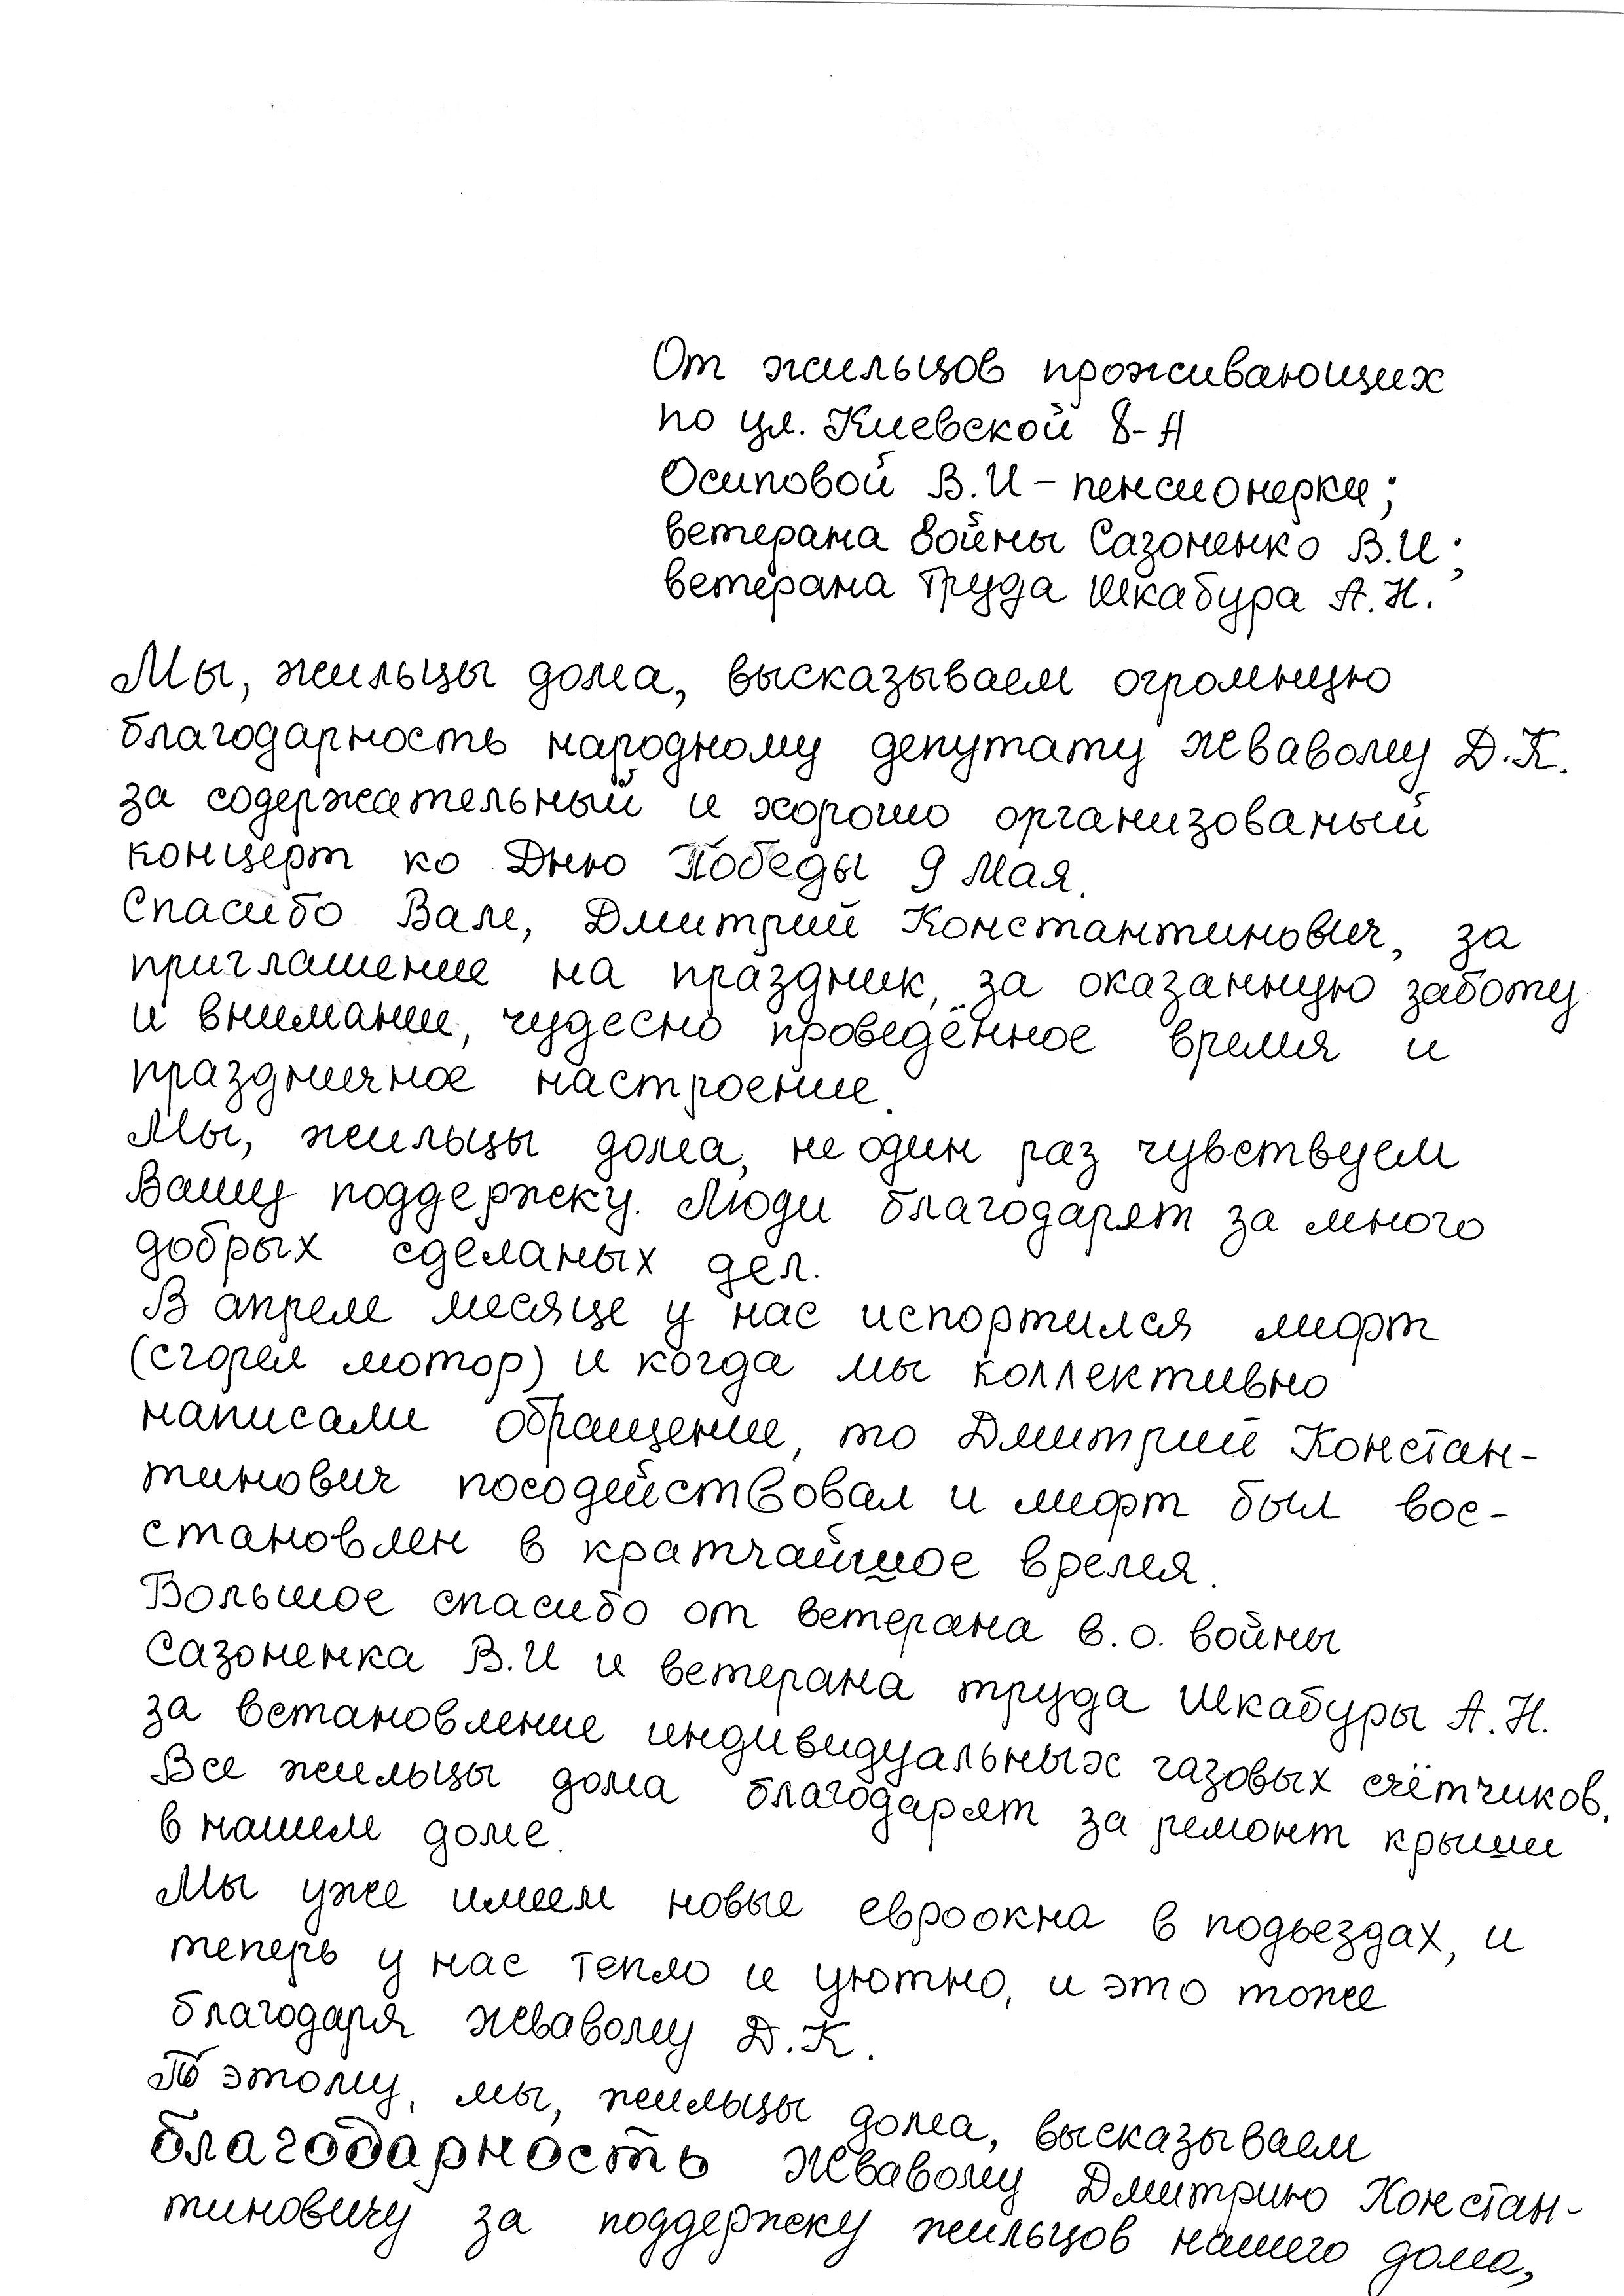 От жильцов проживающих
по ул. Киевской 8-А
Осиповой В.И - пенсионерки;
ветерана войны Сазоненко В.И;
ветерана труда Шкабура А.Н.
Мы, жильцы дома, высказываем огромную
благодарность народному депутату Жвавому Д.К.
за содержательный и хорошо организованый
концерт ко Дню Победы 9 Мая.
Спасибо Вам, Дмитрий Константинович, за
приглашение на праздник, за оказанную заботу
и внимание, чудесно проведённое время и
праздничное настроение.
Мы, жильцы дома, не один раз чувствуем
Вашу поддержку. Люди благодарят за много
добрых сделаных дел.
В апреле месяце у нас испортился лифт
(сгорел мотор) и когда мы коллективно
написали обращение, то Дмитрий Констан-
тинович посодействовал и лифт был вос-
становлен в кратчайшое время.
Большое спасибо от ветерана в.о. войны
Сазоненка В.И и ветерана труда Шкабуры А.Н.
за встановление индивидуальных газовых счётчиков.
Все жильцы дома благодарят за ремонт крыши
в нашем доме.
Мы уже имеем новые евроокна в подьездах, и
теперь у нас тепло и уютно, и это тоже
благодаря Жвавому Д.К.
По этому, мы, жильцы дома, высказываем
благодарность Жвавому Дмитрию Констан-
тиновичу за поддержку жильцов нашего дома,